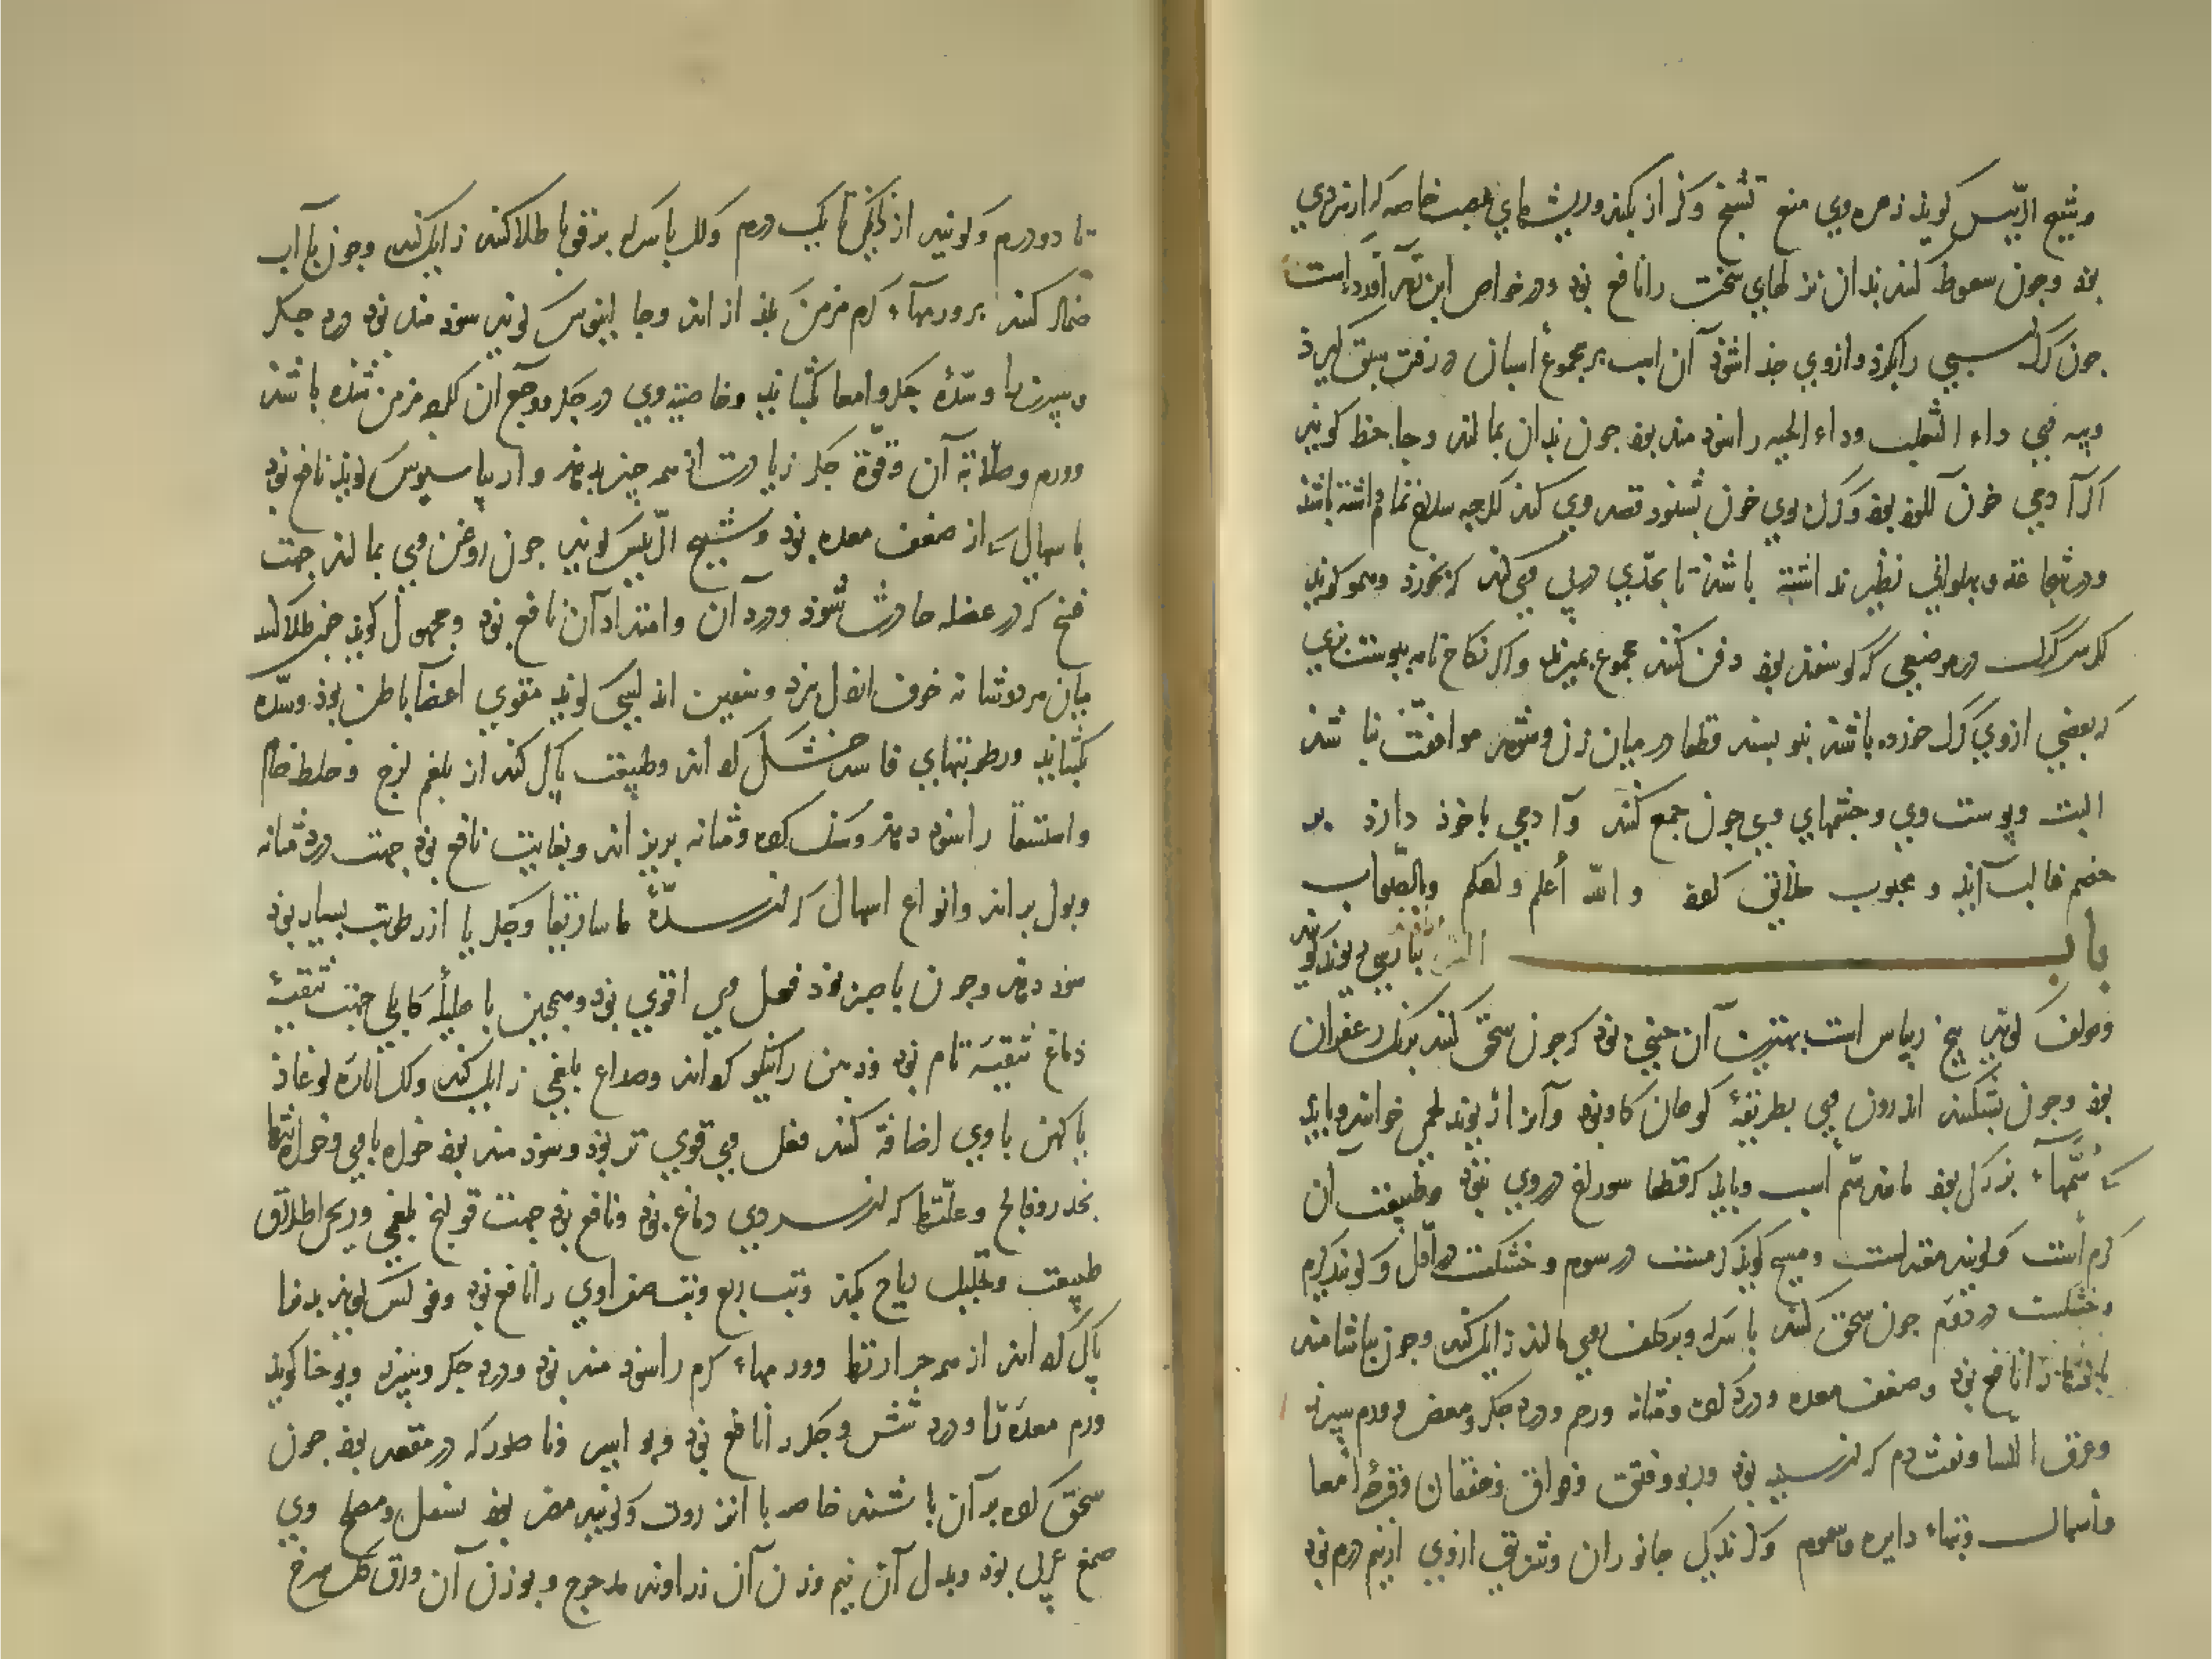 وشیخ الرّییس کویذ زهره وی منع تشنج وکزاز بکند وریشهای عصب خاصه که از سردی
بوذ وجون سعوط کنند بذان نزلهای سخت را نافع بوذ ودر خواص ابن زهر آورده است
جون کرک اسبی را بکزد وازوی جذا شوذ آن اسب بر مجموع اسبان در رفتن سبق کیرد
وپیه وی داء الثعلب وداء الحیه را سوذ مند بوذ جون بذان بمالند وجاحظ کویند
اکر آدمی خون آلوذ بوذ وکرک بوی خون بشنود قصد وی کند اکرجه سلاح تمام داشته باشد
ودر شجاعة وبهلوانی نظیر نداشته باشد تا بحدّی در پی می کند که بخورذ وهمو کویذ
کر سر کرک در موضعی که کوسفند بوذ دفن کنند مجموع بمیرند واکر نکاح نامه بپوست بزی
که بعضی ازوی کرک خورده باشد بنویسند قطعا در میان زن وشوهر موافقت نباشد
البت وپوست وی وجشمهای وی جون جمع کنند وآدمی با خوذ دارذ بر
خصم غالب آیذ ومحبوب خلایق کردد والله أعلم واحکم وبالصّواب
باب الر بارسی ریوند کویند
ومولف کویذ بیخ ریباس است بهترین آن جینی بوذ که جون سحق کنند برنک زعفران
بوذ وجون بشکنند اندرون وی بطریقهٔ کوهان کاو بوذ وآنرا ریوند لحمی خوانند وبایذ
که سمّهاء بزرک بوذ مانند سم اسب وبایذ که قطعا سوراخ در وی نبوذ وطبیعت آن
کرم است وکویند معتدلست ومسیح کویذ کرمست در سوم وخشکست در اوّل وکویند کرم
وخشکست در دوّم جون سحق کنند با سرکه وبر کلف وی مالند زایل کند وجون بیاشامند
بادها را نافع بوذ وضعف معده ودرد کرده ومثانه ورحم ودرد جکر ومغص وورم سپرز
وعرق النسا ونفث دم که از سینه بوذ وربو وفتق وفواق وخفقان وقرحهٔ امعا
واسهال وتبهاء دایره وسموم وکزندکی جانوران وشربتی ازوی از نیم درم بوذ
تا دو درم وکویند از دانکی تا یک درم وکر با سرکه بر قوبا طلا کنند زایل کند وجون با آب
ضماد کنند بر ورمهاء کرم مزمن بکذازاند وجالینوس کویند سوذ مند بوذ درد جکر
وسپرز را وسدّهٔ جکر وامعا بکشایذ وخاصیّت وی در جکر ووجع آن کی مزمن شده باشد
وورم وصلابة آن وقوّة جکر زیادت از همه جیز بدهد واریباسیوس کویذ نافع بوذ
با اسهال که از ضعف معده بوذ وشیخ الرّییس کویذ جون روغن وی بمالند جهت
فسخ که در عضله حادث شوذ ودرد آن وامتداد آن نافع بوذ ومجهول کویذ جون طلا کنند
میان هر دو شانه خوف اندک ببرد وسعید اندلسی کویذ مقوی اعضآ باطن بوذ وسدّه
بکشایذ ورطوبتهای فاسد خشک کرداند وطبیعت پاک کند از بلغم لزج وخلط خام
واستسقا را سوذ دهد وسنک کرده ومثانه بریزاند وبغایت نافع بوذ جهت درد مثانه
وبول براند وانواع اسهال که از سدّهٔ ماساریقا وجکر یا از رطوبت بسیار بوذ
سوذ دهد وجون با صبر بوذ فعل وی اقوی بوذ وهمجنین با هلیلهٔ کابلی جهت تنقیهٔ
دماغ تنقیهٔ تام بوذ وذهن را نیکو کرداند وصداع بلغمی زایل کند وکر ایاره لوغاذ
یا کهن با وی اضافة کنند فعل وی قوی تر بوذ وسوذ مند بوذ خواه با وی وخواه تنها
بخدر وفالج وعلّتها که از سردی دماغ بوذ ونافع بوذ جهت قولنج بلغمی وریحی اطلاق
طبیعت وتحلیل ریاح بکند وتب ربع وتب صفراوی را نافع بوذ وفولس کویذ بدنرا
پاک کرداند از همه حرارتها وورمهاء کرم را سوذ مند بوذ ودرد جکر وسپرز ویوحنا کویذ
ورم معده را ودرد شش وجکر را نافع بوذ وبواسیر وناصور که در مقعد بوذ جون
سحق کرده بر آن باشند خاصه با انزروت وکویند مضر بوذ بسفل ومصلح وی
صمغ عربی بوذ وبدل آن نیم وزن آن زراوند مدحرج وبوزن آن ورق کل سرخ